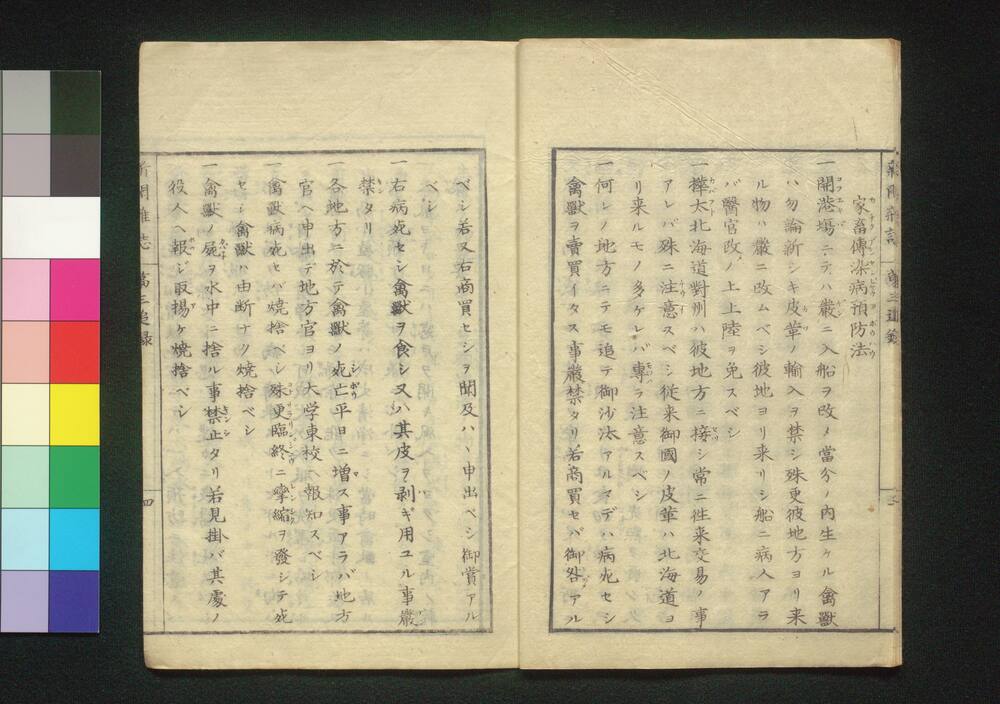 家畜傳染病預防法
一開港塲ニテハ嚴ニ入船ヲ改メ當分ノ内生ケル禽獸
ハ勿論新シキ皮革ノ輸入ヲ禁シ殊更彼地方ヨリ来
ル物ハ嚴ニ改ムベシ彼地ヨリ来リシ船ニ病人アラ
バ醫官改メノ上上陸ヲ免スベシ
一樺太北海道對州ハ彼地方ニ接シ常ニ往来交易ノ事
アレバ殊ニ注意スベシ従来御國ノ皮革ハ北海道ヨ
リ来ルモノ多ケレバ專ラ注意スベシ
一何レノ地方ニテモ追テ御沙汰アルマデハ病死セシ
禽獸ヲ賣買イタス事嚴禁タリ若商買セバ御咎アル
ベシ若又右商買セシヲ聞及ハヽ申出ベシ御賞アル
ベシ
一右病死セシ禽獸ヲ食シ又ハ其皮ヲ剥ギ用ユル事嚴
禁タリ
一各地方ニ於テ禽獸ノ死亡平日ニ増ス事アラバ地方
官ヘ申出デ地方官ヨリ大学東校ヘ報知スベシ
一禽獸病死セバ焼捨ベシ殊更臨終ニ攣縮ヲ發シテ死
セシ禽獸ハ由断ナク焼捨ベシ
一禽獸ノ屍ヲ水中ニ捨ル事禁止タリ若見掛バ其處ノ
役人ヘ報ジ取揚ゲ焼捨ベシ
新聞雑志
第三追録
四